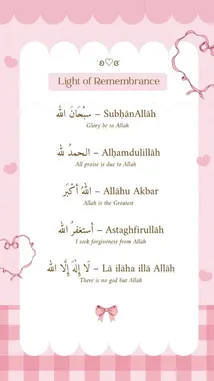 Light of Remembrance
سُبْحَانَ الله – SubḥānAllāh
Glory be to Allah
الحمدُ لله – Alḥamdulillāh
All praise is due to Allah
اللهُ أَكْبَر – Allāhu Akbar
Allah is the Greatest
أستغفرُ الله – Astaghfirullāh
I seek forgiveness from Allah
لَا إِلٰهَ إِلَّا الله – Lā ilāha illā Allāh
There is no god but Allah